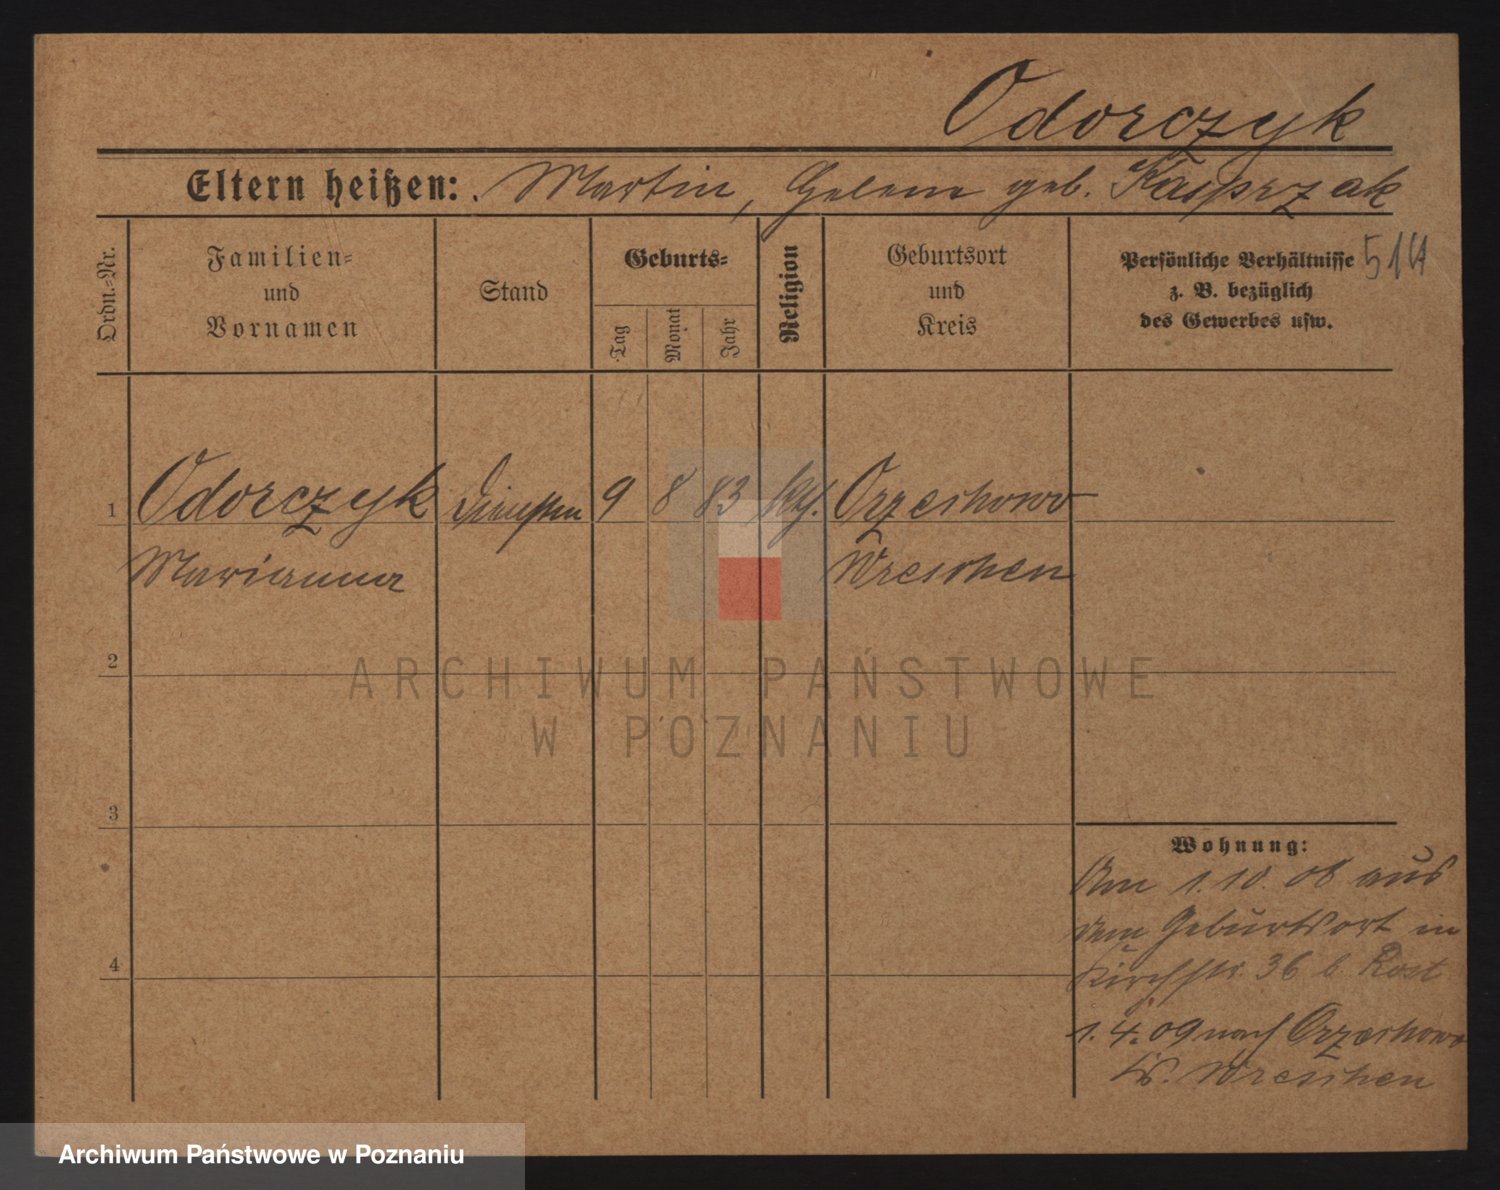 Odorczyk
Eltern heißen: Martin, Helene geb. Kasprzak
Ordn.-Nr.
Familien-
und
Vornamen
Stand
Geburts-
Tag
Monat
Jahr
Religion
Geburtsort
und
Kreis
Persönliche Verhältnisse
z. B. bezüglich
des Gewerbes usw.
514
1 Odorczyk 9 8 83 kth. Orzechowo
Marianna Wreschen
2
3
4
Wohnung:
Am 1.10.08 aus
dem Geburtsort in
Kirchstr. 36 b. Rost
1.4.09 nach Orzechowo
Kr. Wreschen
ARCHIWUM PAŃSTWOWE
W POZNANIU
Archiwum Państwowe w Poznaniu